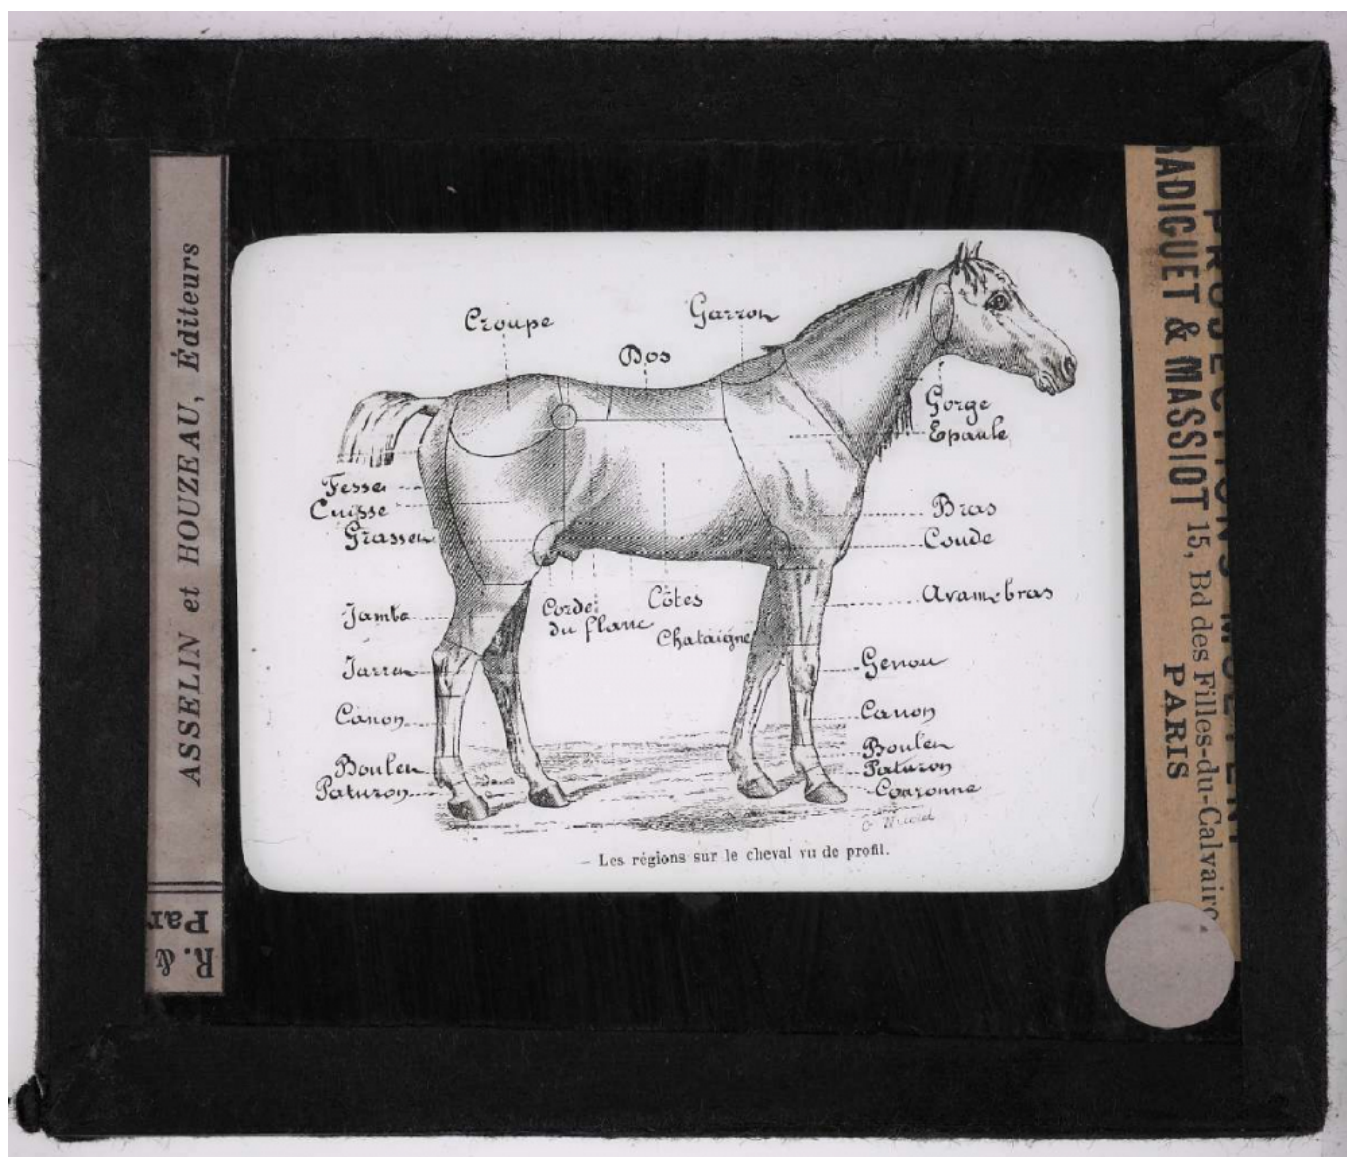 ASSELIN et HOUZEAU, Éditeurs
R. &
Par
Croupe
Garron
Dos
Gorge
Epaule
Fesse
Cuisse
Grasset
Bras
Coude
Jambe
Corde
du flanc
Côtes
Chataigne
Avant-bras
Jarret
Genou
Canon
Canon
Boulet
Paturon
Boulet
Paturon
Couronne
– Les régions sur le cheval vu de profil.
PROJECTIONS MOLTENI
RADIGUET & MASSIOT
15, Bd des Filles-du-Calvaire.
PARIS